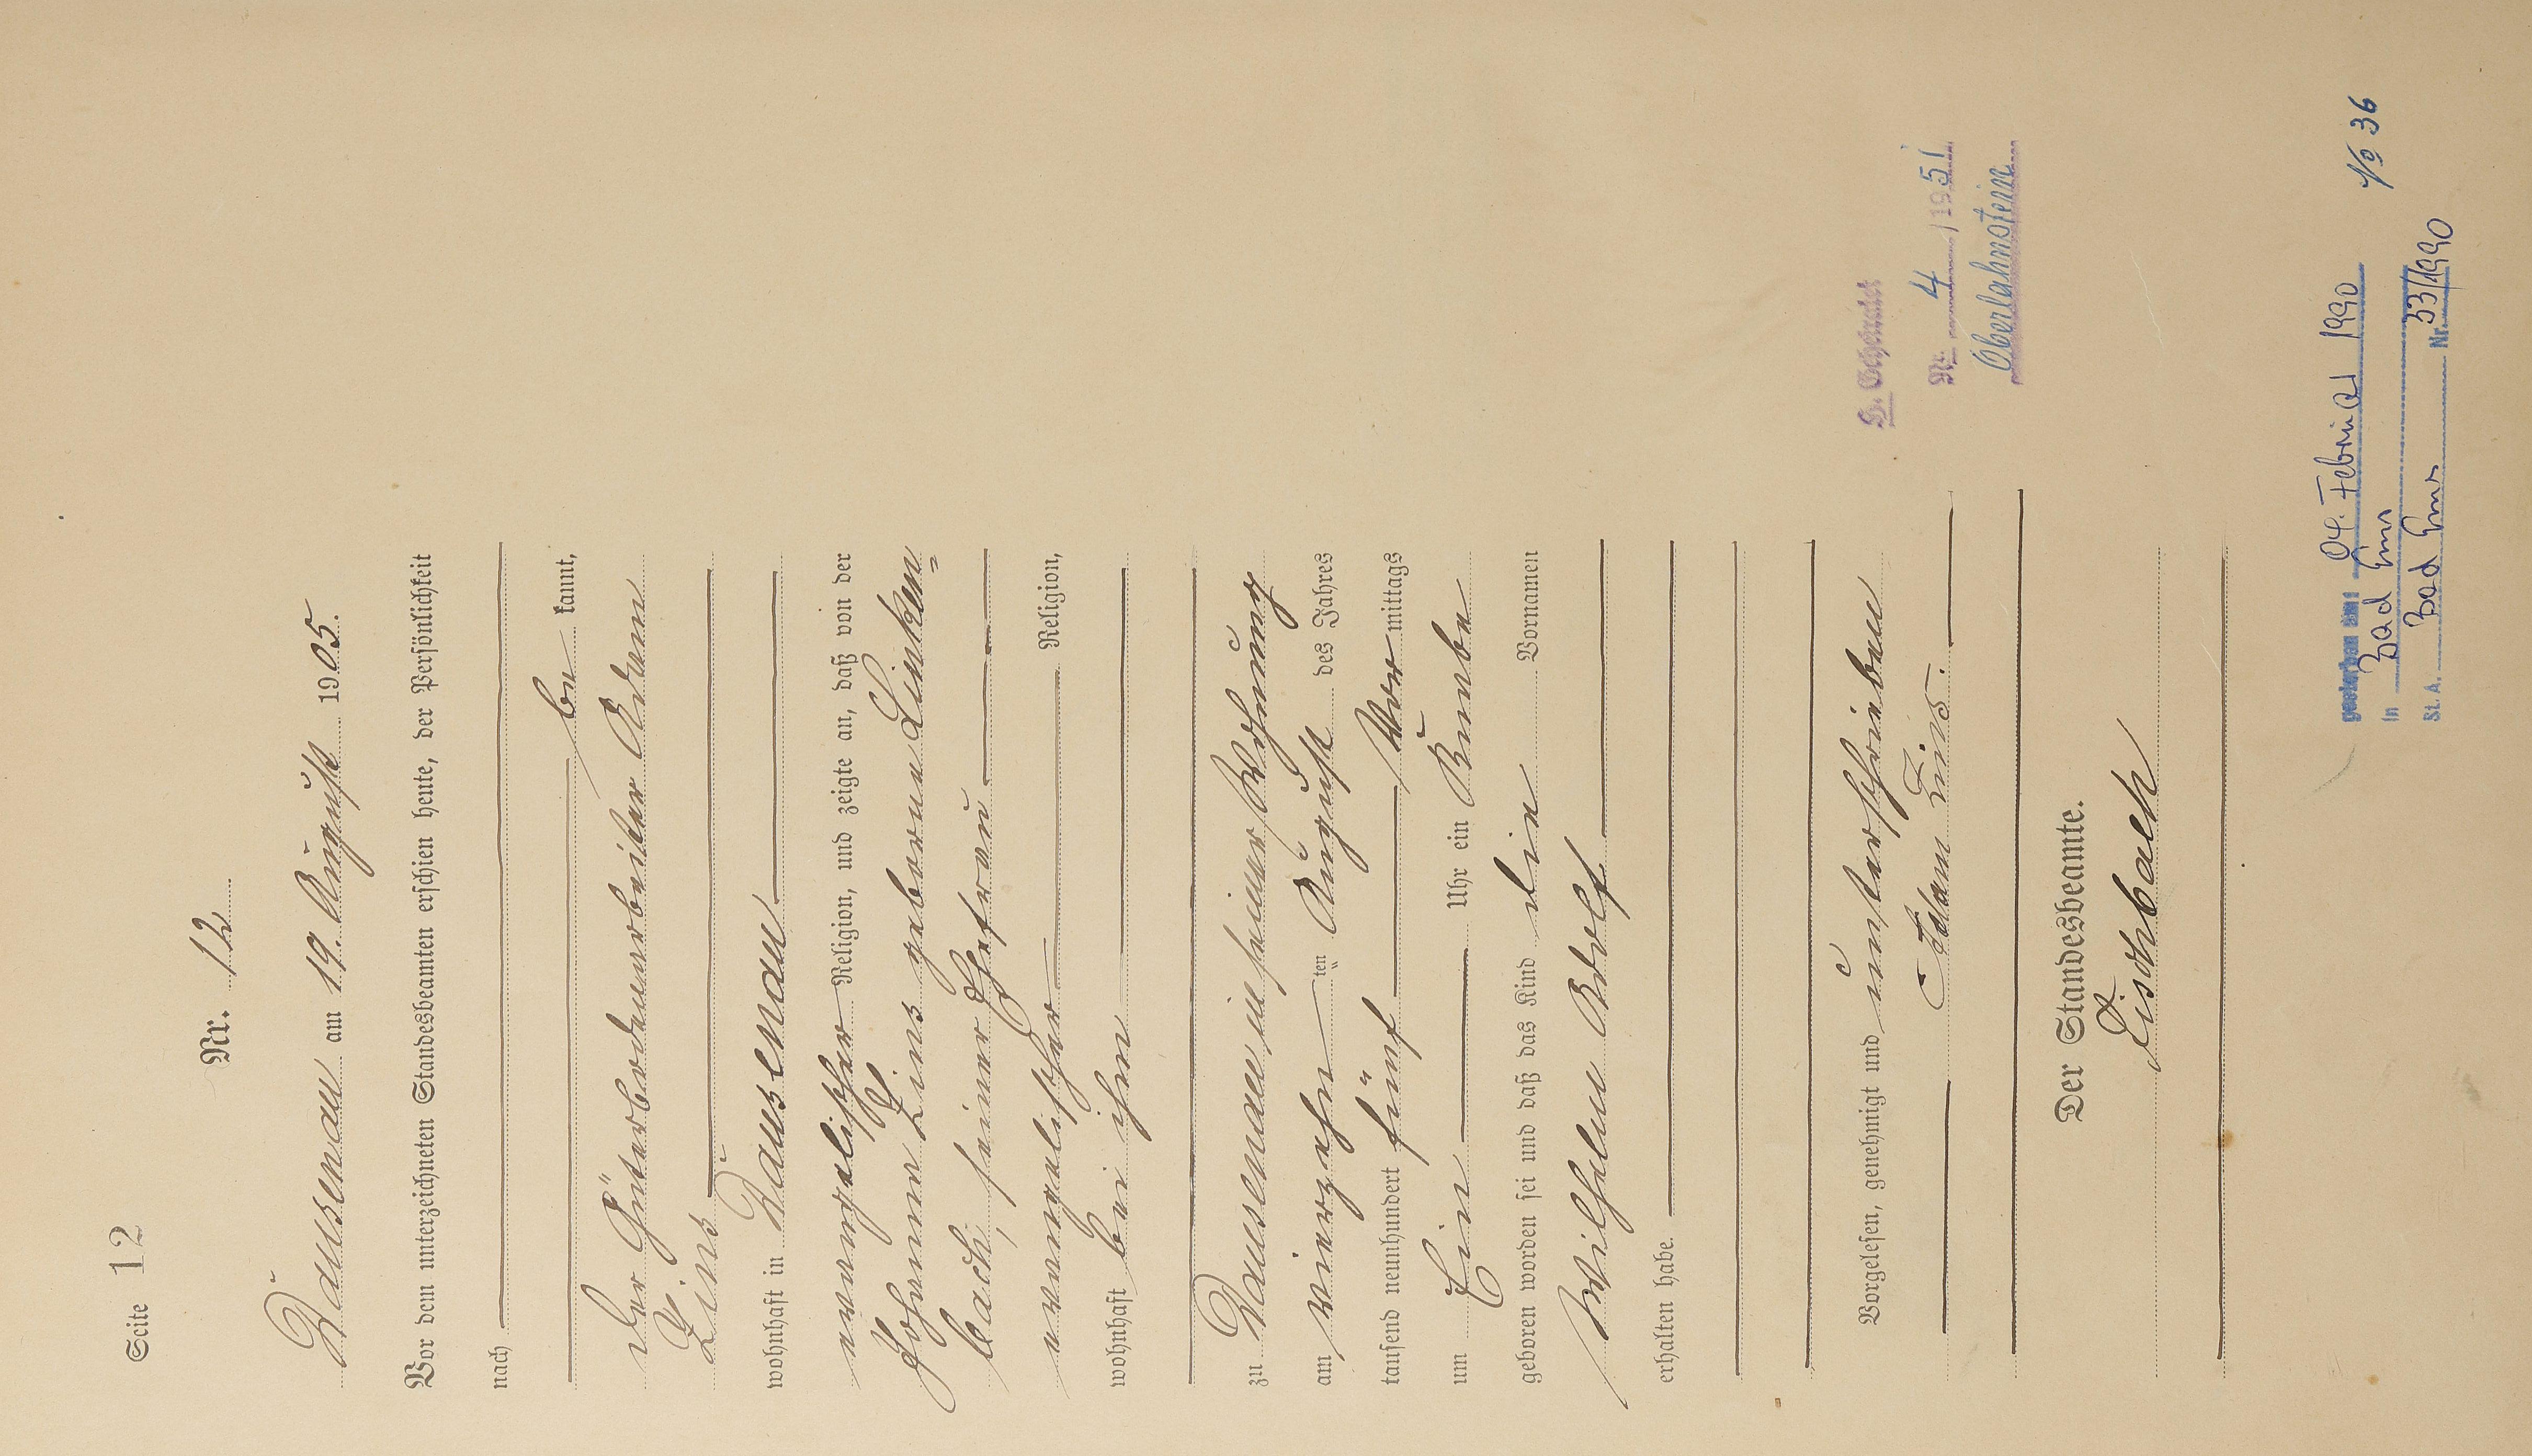 Seite 12
Nr. 12
Dausenau am 19. August 1905.
Vor dem unterzeichneten Standesbeamten erschien heute, der Persönlichkeit
nach
be kannt,
der Güterbodenarbeiter Adam
Zins
wohnhaft in Dausenau
evangelischer Religion, und zeigte an, daß von der
Johanna Zins geborene Linken=
bach, seiner Ehefrau
evangelischer Religion,
wohnhaft bei ihm
zu Dausenau in seiner Wohnung
am vierzehn ten August des Jahres
tausend neunhundert fünf Vor mittags
um Ein Uhr ein Knabe
geboren worden sei und daß das Kind die Vornamen
Wilhelm Adolf
erhalten habe.
Vorgelesen, genehmigt und unterschrieben
Adam Zins.
Der Standesbeamte.
Linkenbach
H. Geheiratet
Nr. 4 / 1951
Oberlahnstein
gestorben am 04. Februar 1990 No 36
in Bad Ems
St. A. Bad Ems Nr. 33/1990